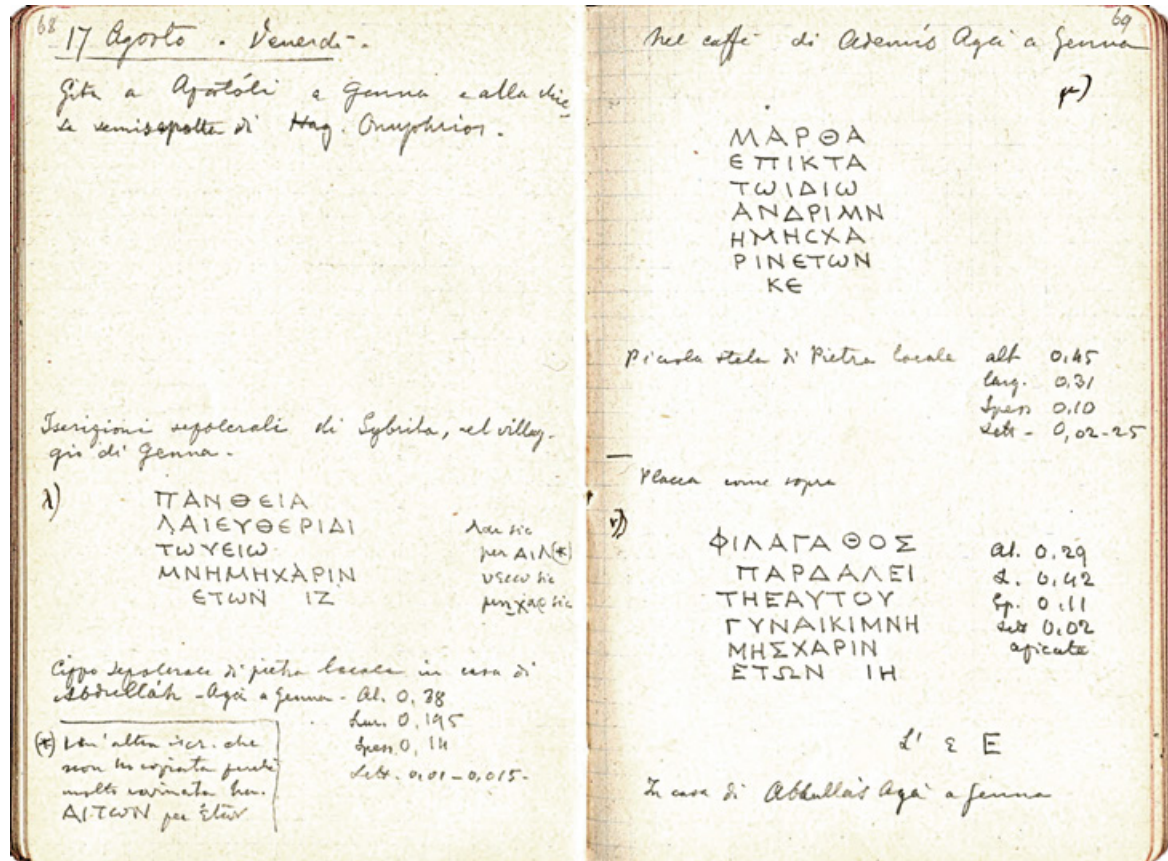 68
17 Agosto - Venerdì -
Gita a Apostóli a Genna e alla chie-
sa semisepolta di Hag. Onuphrios.
Iscrizioni sepolcrali di Sybrita, nel villag-
gio di Genna -
λ)
ΠΑΝΘΕΙΑ
ΛΑΙΕΥΘΕΡΙΔΙ
ΤΩΥΕΙΩ
ΜΝΗΜΗΧΑΡΙΝ
ΕΤΩΝ ΙΖ
λαι sic
per ΑΙΛ (*)
υειω sic
μηχαρ sic
Cippo sepolcrale di pietra locale in casa di
Abdullah - Agà a Genna - Al. 0,38
Lar. 0,195
Spess. 0,14
Lett. 0,01-0,015-
(*) Un'altra iscr. che
non ho copiata perchè
molto rovinata ha
ΑΙΤωΝ per ἐτῶν
69
Nel caffè di Ademis Agà a Genna
μ)
ΜΑΡΘΑ
ЄΠΙΚΤΑ
ΤωΙΔΙω
ΑΝΔΡΙΜΝ
ΗΜΗϹΧΑ
ΡΙΝЄΤωΝ
ΚЄ
Piccola stela di Pietra locale alt 0.45
larg. 0.31
Spess 0.10
Lett - 0,02-25
Placca come sopra
ν)
ΦΙΛΑΓΑΘΟΣ
ΠΑΡΔΑΛΕΙ
ΤΗΕΑΥΤΟΥ
ΓΥΝΑΙΚΙΜΝΗ
ΜΗΣΧΑΡΙΝ
ΕΤΩΝ ΙΗ
Al. 0.29
L. 0.42
Sp. 0.11
Lett 0.02
apicate
L' ε Ε
In casa di Abdullàs Agà a Genna